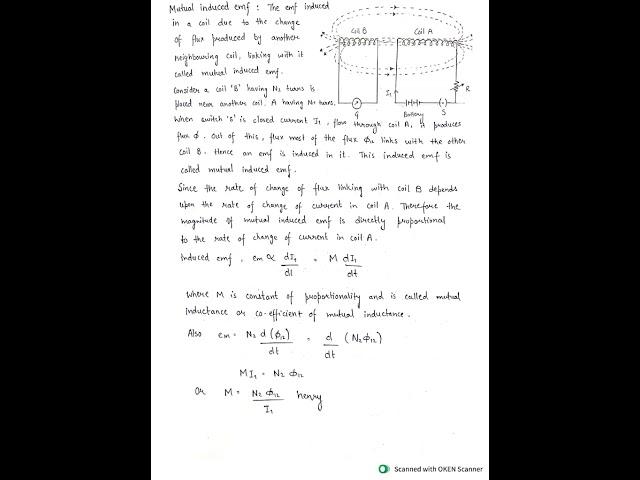 Mutual induced emf : The emf induced
in a coil due to the change
of flux produced by another
neighbouring coil, linking with it
called mutual induced emf.
Coil B
Coil A
I1
R
G
Battery
S
Consider a coil 'B' having N2 turns is
placed near another coil. A having N1 turns.
When switch 's' is closed current I1, flow through coil A, it produces
flux ϕ. Out of this, flux most of the flux ϕ12 links with the other
coil B. Hence an emf is induced in it. This induced emf is
called mutual induced emf.
Since the rate of change of flux linking with coil B depends
upon the rate of change of current in coil A. Therefore the
magnitude of mutual induced emf is directly proportional
to the rate of change of current in coil A.
Induced emf, em ∝ dI1/dt = M dI1/dt
where M is constant of proportionality and is called mutual
inductance or co-efficient of mutual inductance.
Also em = N2 d(ϕ12)/dt = d/dt (N2ϕ12)
MI1 = N2 ϕ12
Or M = N2 ϕ12/I1 henry
Scanned with OKEN Scanner